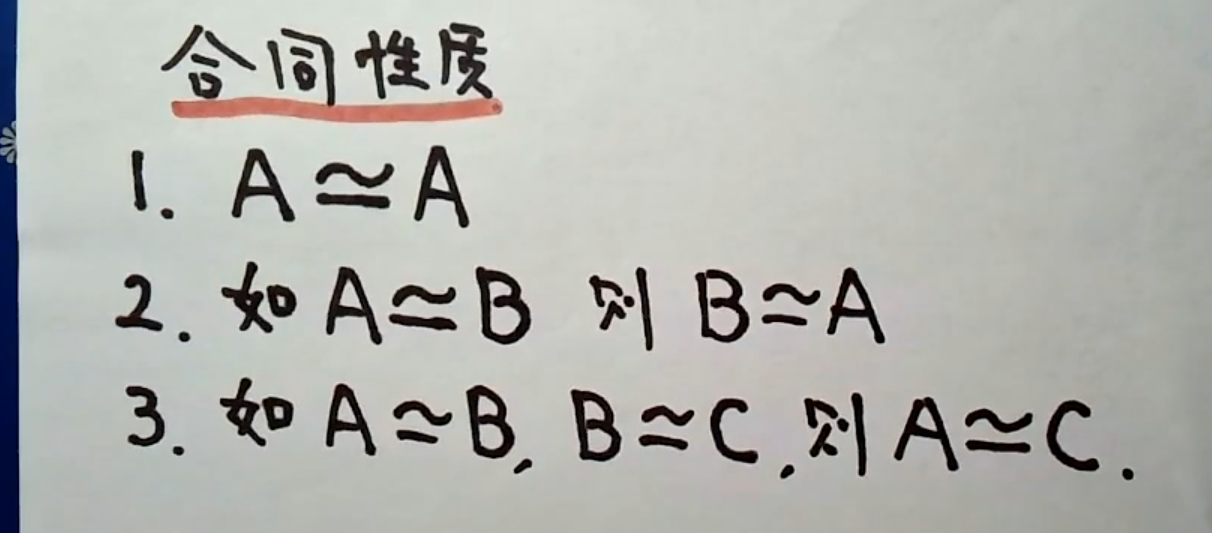 合同性质
1. A≃A
2. 如 A≃B 则 B≃A
3. 如 A≃B, B≃C, 则 A≃C.